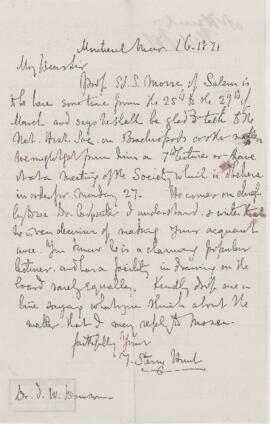 Montreal Mar. 16. 1871
My Dear Sir
Prof Ed. S. Morse of Salem is
to be here some time from the 25th to the 29th of
March and says he shall be glad to talk to the
Nat. Hist. Soc. on Brachiopods or other
we might get from him a lecture or have
at a meeting of the Society which is
in order for Monday 27.
Dr. Carpenter I understand, &
desirous of making your acquaint
ance. You know he is a charming popular
lecturer and has a facility in drawing on the
board rarely equalled. Kindly drop me a
line saying what you think about the
matter that I may reply to Morse.
faithfully Yours
T. Sterry Hunt
Dr. J. W. Dawson